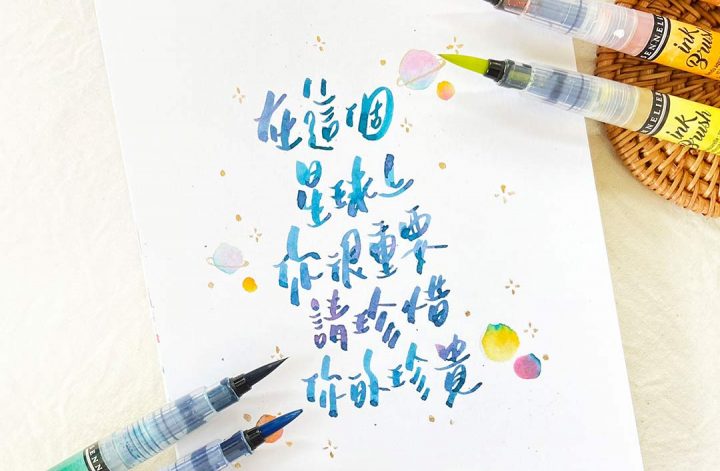 在這個
星球上
你很重要
請珍惜
你的珍貴
SENNELIER
ink
Brush
SENNELIER
ink
Brush